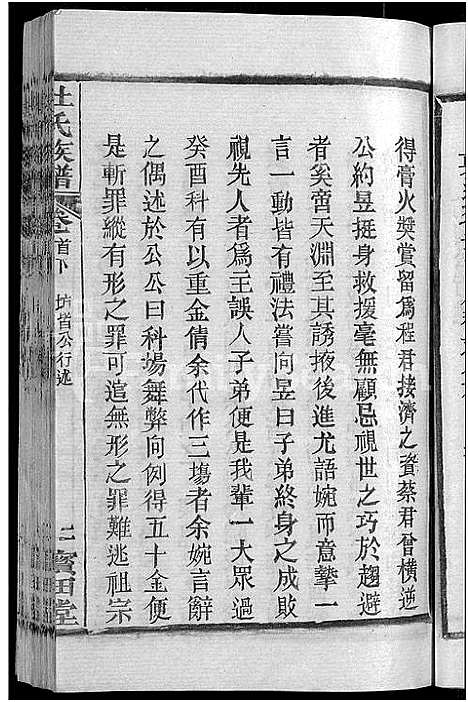 得膏火獎賞留爲程君接濟之資蔡君曾橫逆
公約昱挺身救援毫無顧忌視世之巧於趨避
者奚啻天淵至其誘掖後進尤語婉而意摯一
言一動皆有禮法嘗向昱曰子弟終身之成敗
視先人者爲主誤人子弟便是我輩一大眾過
癸酉科有以重金倩余代作三塲者余婉言辭
之偶述於公公曰科場舞弊向例得五十金便
是斬罪縱有形之罪可逭無形之罪難逃祖宗
杜氏族譜
卷首下
省公行述
二
寳田堂